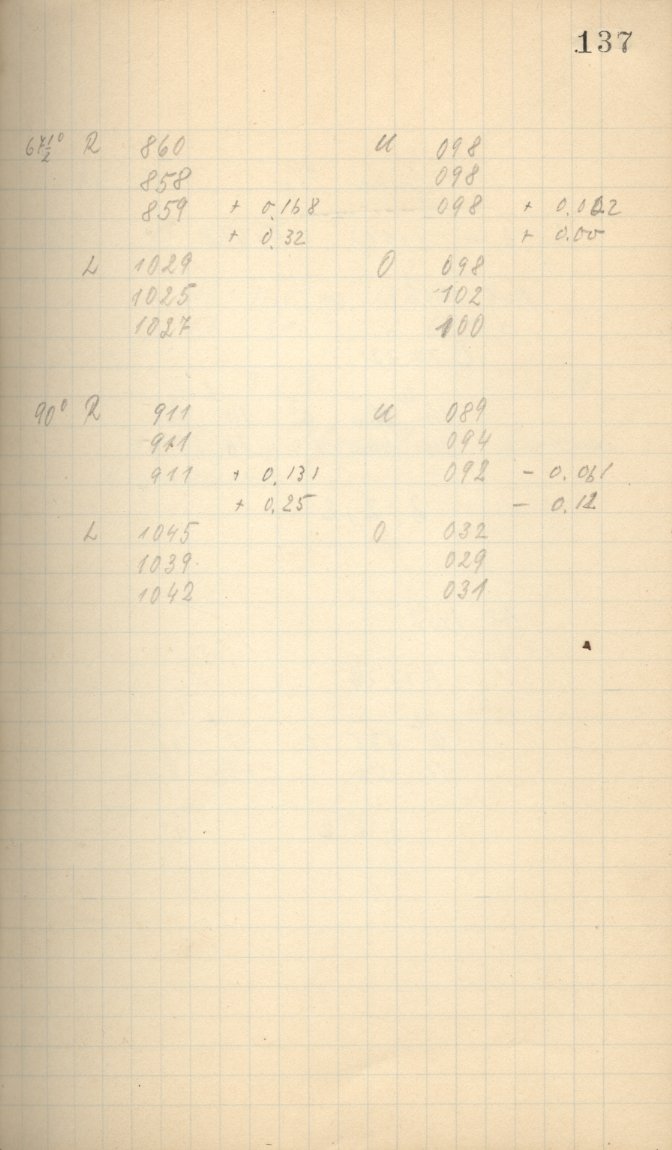 137
67½° R 860 U 098
858 098
859 + 0.168 098 + 0.002
+ 0.32 + 0.00
L 1029 O 098
1025 102
1027 100
90° R 911 U 089
911 094
911 + 0.131 092 - 0.061
+ 0.25 - 0.12
L 1045 O 032
1039 029
1042 031